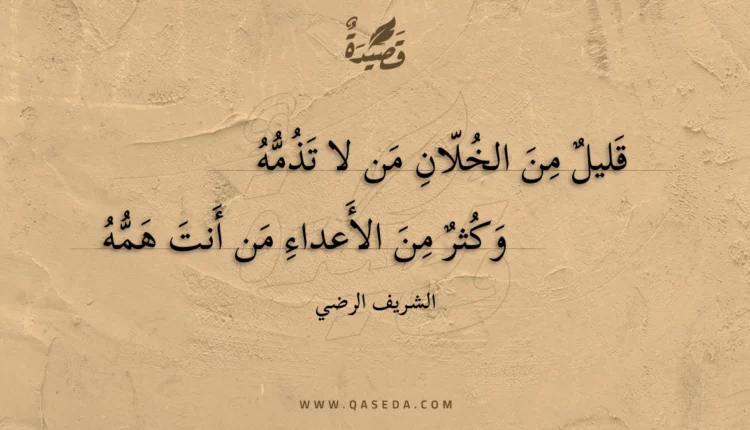 قَصِيدَةٌ
قَليلٌ مِنَ الخُلّانِ مَن لا تَذُمُّهُ
وَكُثرٌ مِنَ الأَعداءِ مَن أَنتَ هَمُّهُ
الشريف الرضي
WWW.QASEDA.COM